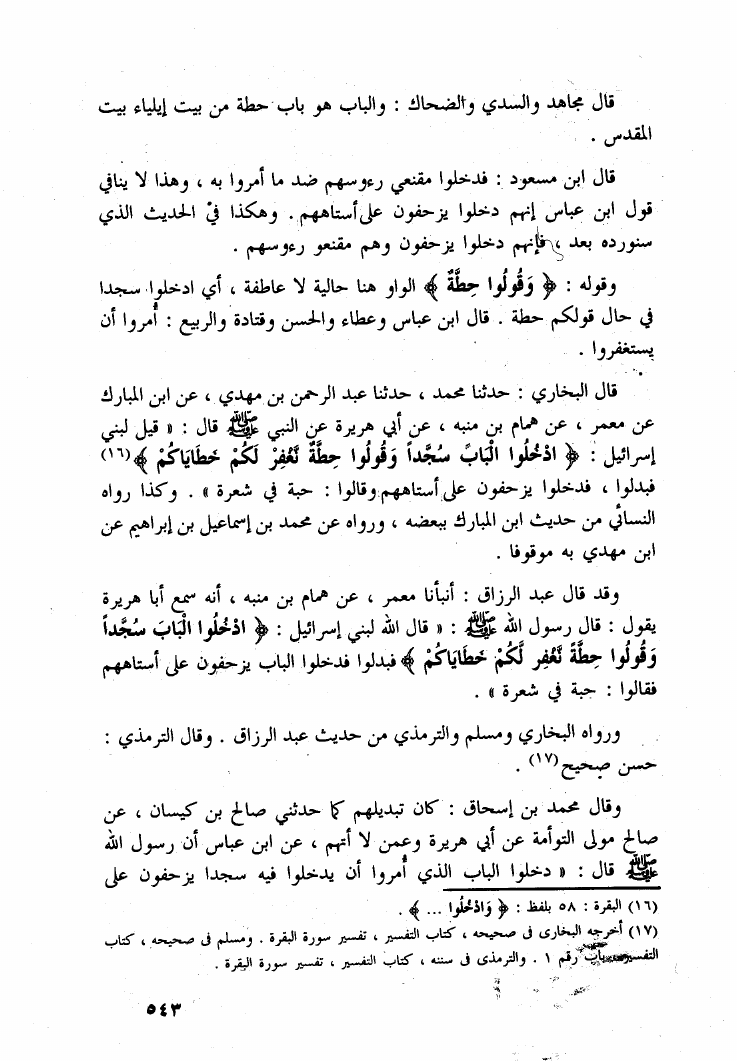 قال مجاهد والسدي والضحاك : والباب هو باب حطة من بيت إيلياء بيت
المقدس .
قال ابن مسعود : فدخلوا مقنعي رءوسهم ضد ما أمروا به ، وهذا لا ينافي
قول ابن عباس إنهم دخلوا يزحفون على أستاههم . وهكذا في الحديث الذي
سنورده بعد ، فإنهم دخلوا يزحفون وهم مقنعو رءوسهم .
وقوله : ﴿ وَقُولُوا حِطَّةٌ ﴾ الواو هنا حالية لا عاطفة ، أي ادخلوا سجدا
في حال قولكم حطة . قال ابن عباس وعطاء والحسن وقتادة والربيع : أُمروا أن
يستغفروا .
قال البخاري : حدثنا محمد ، حدثنا عبد الرحمن بن مهدي ، عن ابن المبارك
عن معمر ، عن همام بن منبه ، عن أبي هريرة عن النبي ﷺ قال : « قيل لبني
إسرائيل : ﴿ ادْخُلُوا الْبَابَ سُجَّداً وَقُولُوا حِطَّةٌ نَّغْفِرْ لَكُمْ خَطَايَاكُمْ ﴾(١٦)
فبدلوا ، فدخلوا يزحفون على أستاههم وقالوا : حبة في شعرة » . وكذا رواه
النسائي من حديث ابن المبارك ببعضه ، ورواه عن محمد بن إسماعيل بن إبراهيم عن
ابن مهدي به موقوفا .
وقد قال عبد الرزاق : أنبأنا معمر ، عن همام بن منبه ، أنه سمع أبا هريرة
يقول : قال رسول الله ﷺ : « قال الله لبني إسرائيل : ﴿ ادْخُلُوا الْبَابَ سُجَّداً
وَقُولُوا حِطَّةٌ نَّغْفِر لَّكُمْ خَطَايَاكُمْ ﴾ فبدلوا فدخلوا الباب يزحفون على أستاههم
فقالوا : حبة في شعرة » .
ورواه البخاري ومسلم والترمذي من حديث عبد الرزاق . وقال الترمذي :
حسن صحيح(١٧) .
وقال محمد بن إسحاق : كان تبديلهم كما حدثني صالح بن كيسان ، عن
صالح مولى التوأمة عن أبي هريرة وعمن لا أتهم ، عن ابن عباس أن رسول الله
ﷺ قال : « دخلوا الباب الذي أُمروا أن يدخلوا فيه سجدا يزحفون على
(١٦) البقرة : ٥٨ بلفظ : ﴿ وَادْخُلُوا ... ﴾ .
(١٧) أخرجه البخارى فى صحيحه ، كتاب التفسير ، تفسير سورة البقرة . ومسلم فى صحيحه ، كتاب
التفسير باب رقم ١ . والترمذى فى سننه ، كتاب التفسير ، تفسير سورة البقرة .
٥٤٣